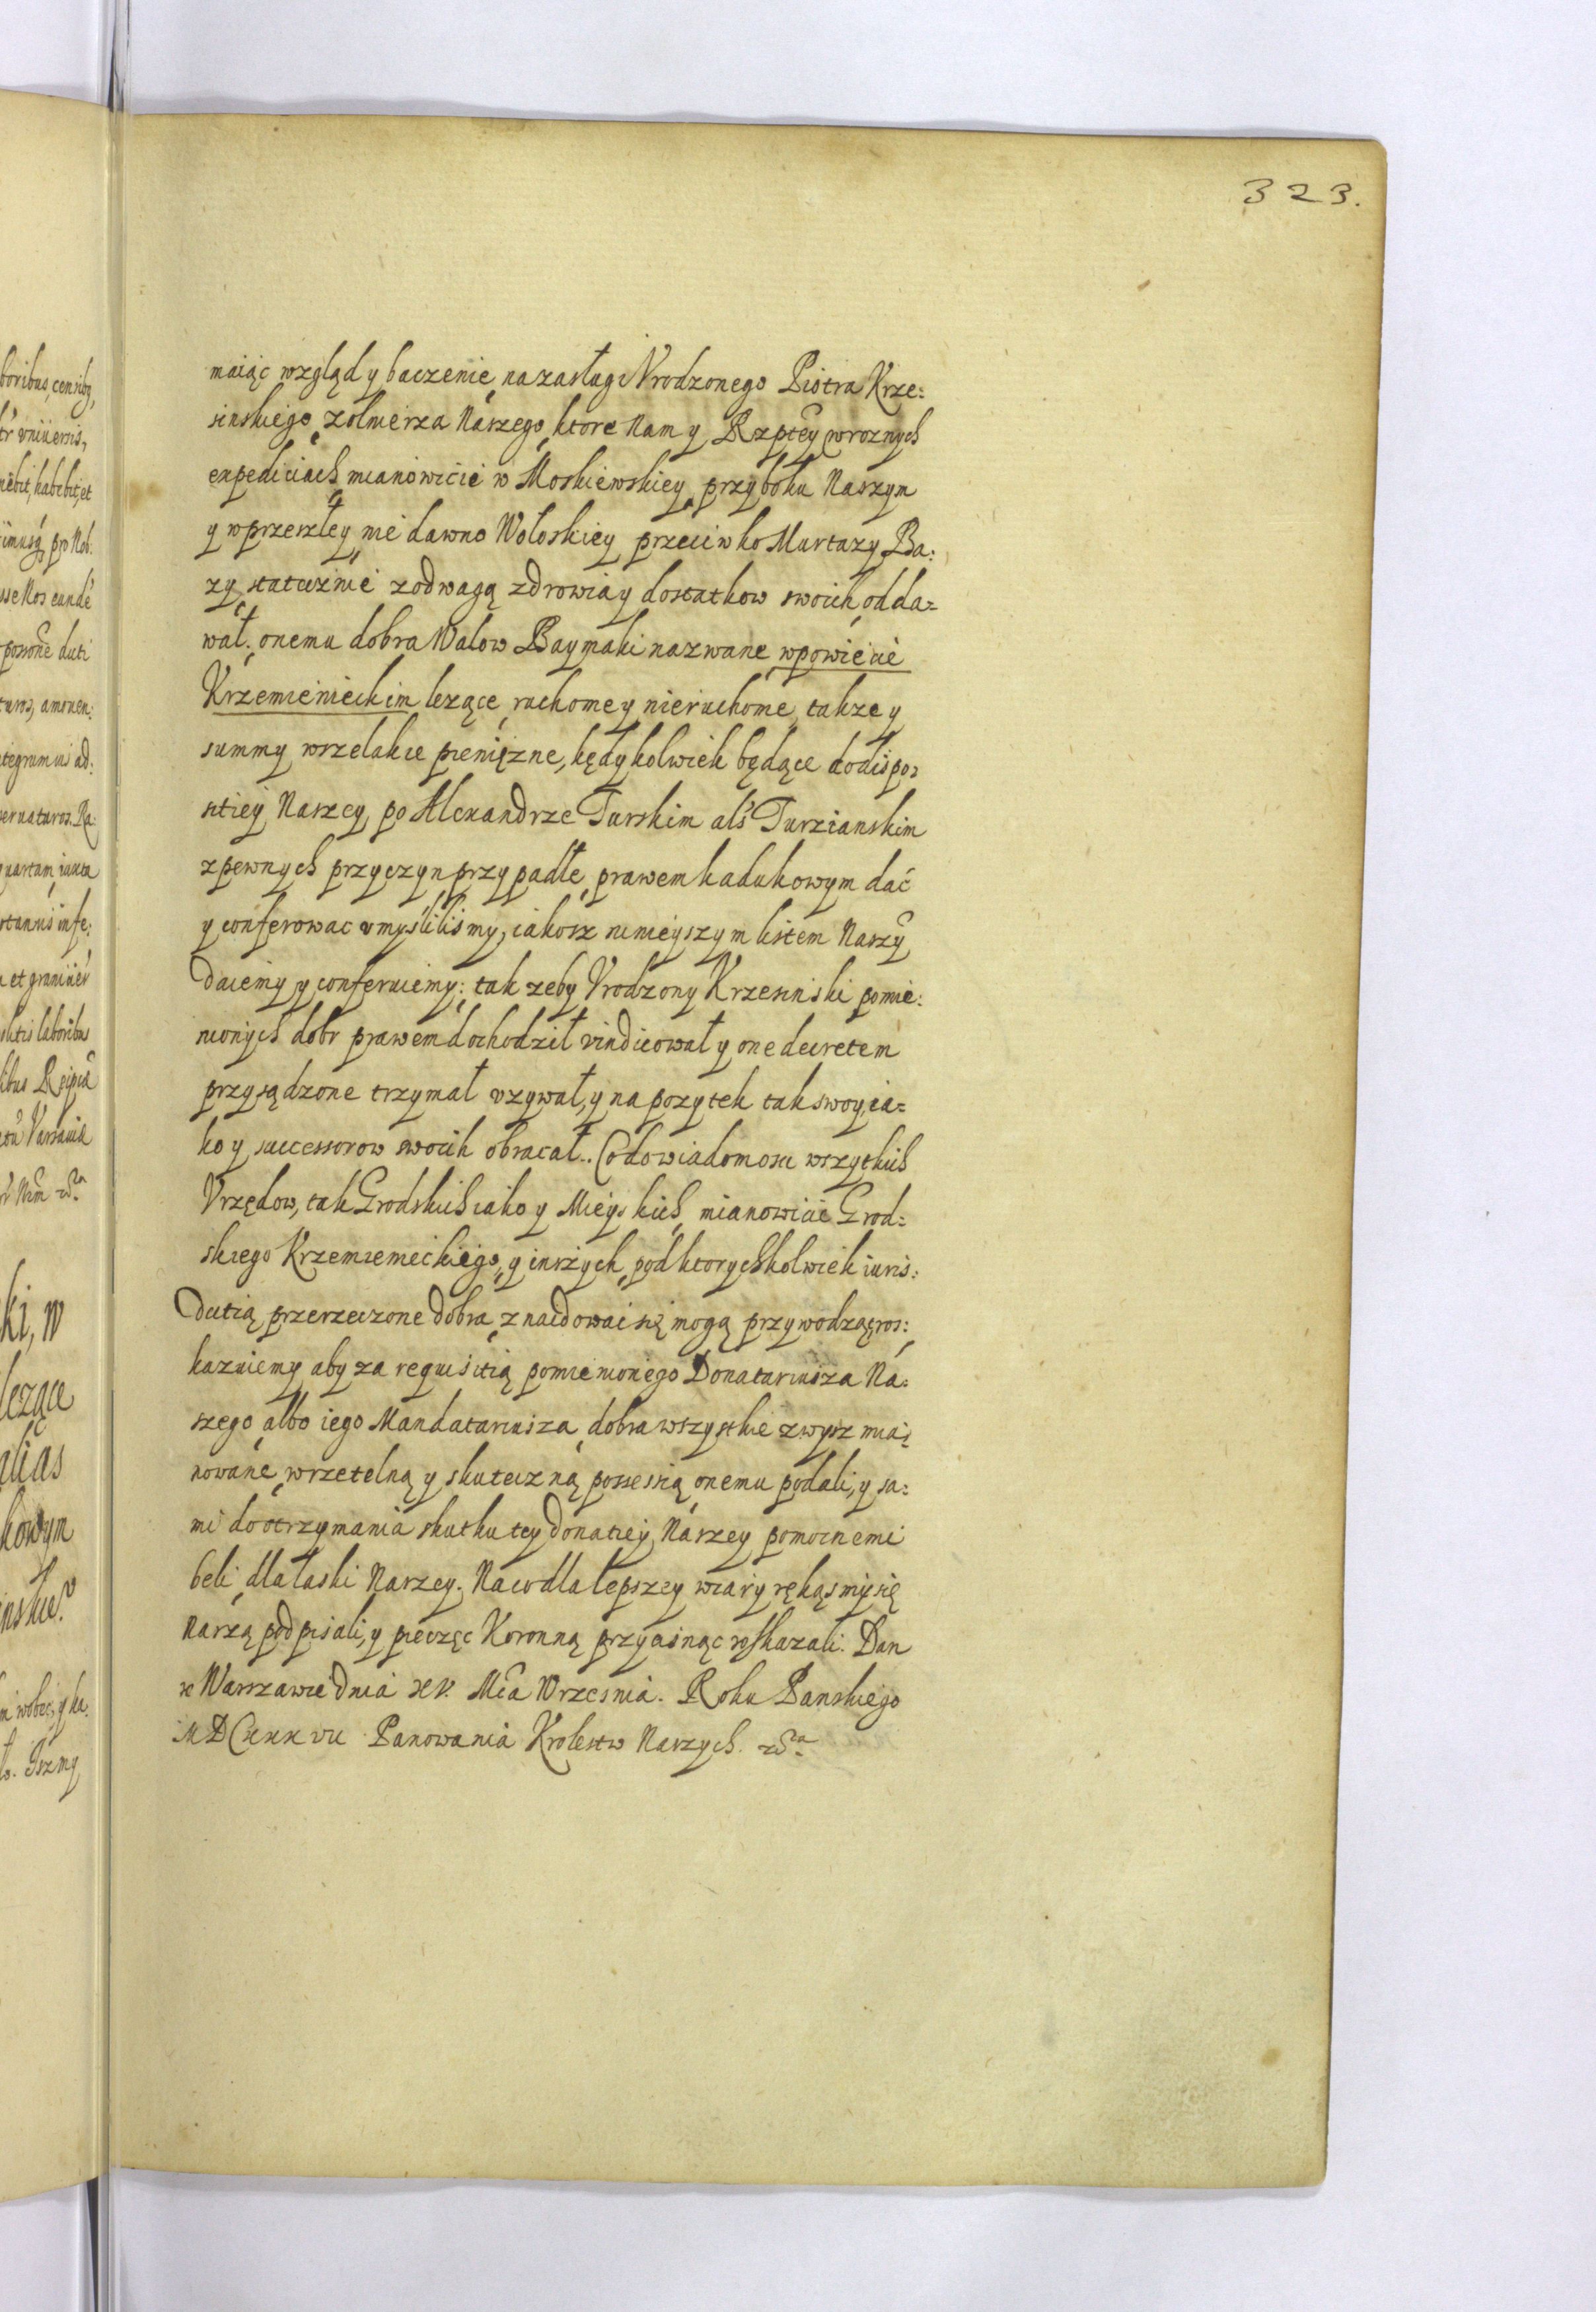 323.
maiąc wzgląd y baczenie, na zasługi Vrodzonego Piotra Krze:
sinskiego, zolnierza Naszego, ktore Nam y Rzptey w roznych
expediciach, mianowicie w Moskiewskiey, przy boku Naszym
y w przeszłey nie dawno Wołoskiey przeciwko Murtazy Ba:
zy, statecznie z odwagą zdrowia y dostatkow swoich, odda=
wał: onemu dobra Walow Baymaki nazwane w powiecie
Krzemienieckim lezące, ruchome y nieruchome, takze y
summy wszelakie pienięzne, kędykolwiek będące do dispo=
sitiey Naszey, po Alexandrze Turskim als Turzianskim
z pewnych przyczyn przypadłe, prawem kadukowym dać
y conferowac vmyslilismy, iakosz ninieyszym listem Naszỹ
daiemy y conferuiemy: tak zeby Vrodzony Krzesinski pomie:
nionych dobr prawem dochodził vindicował y one decretem
przysądzone trzymał vzywał, y na pozytek tak swoy, ia=
ko y successorow swoich obracał. Co do wiadomosci wszytkich
Vrzędow, tak Grodskich iako y Mieyskich, mianowicie Grod=
skiego Krzemienieckiego, y inszych, pod ktorychkolwiek iuris:
dictią przerzeczone dobra, znaidowac się mogą przywodząc, ros:
kazuiemy aby za requisitią pomienionego Donatariusza Na=
szego, albo iego Mandatariusza, dobra wszystkie zwysz mia=
nowane, w rzetelną y skuteczną possessią, onemu podali, y sa:
mi do otrzymania skutku tey donatiey Naszey pomocnemi
beli, dla łaski Naszey. Na co dla lepszey wiary rękąsmy się
Naszą podpisali, y pieczęc Koronną przycisnąc roskazali. Dan
w Warszawie dnia XV. Mca Wrzesnia. Roku Panskiego
MDCXXXVII Panowania Krolestw Naszych.